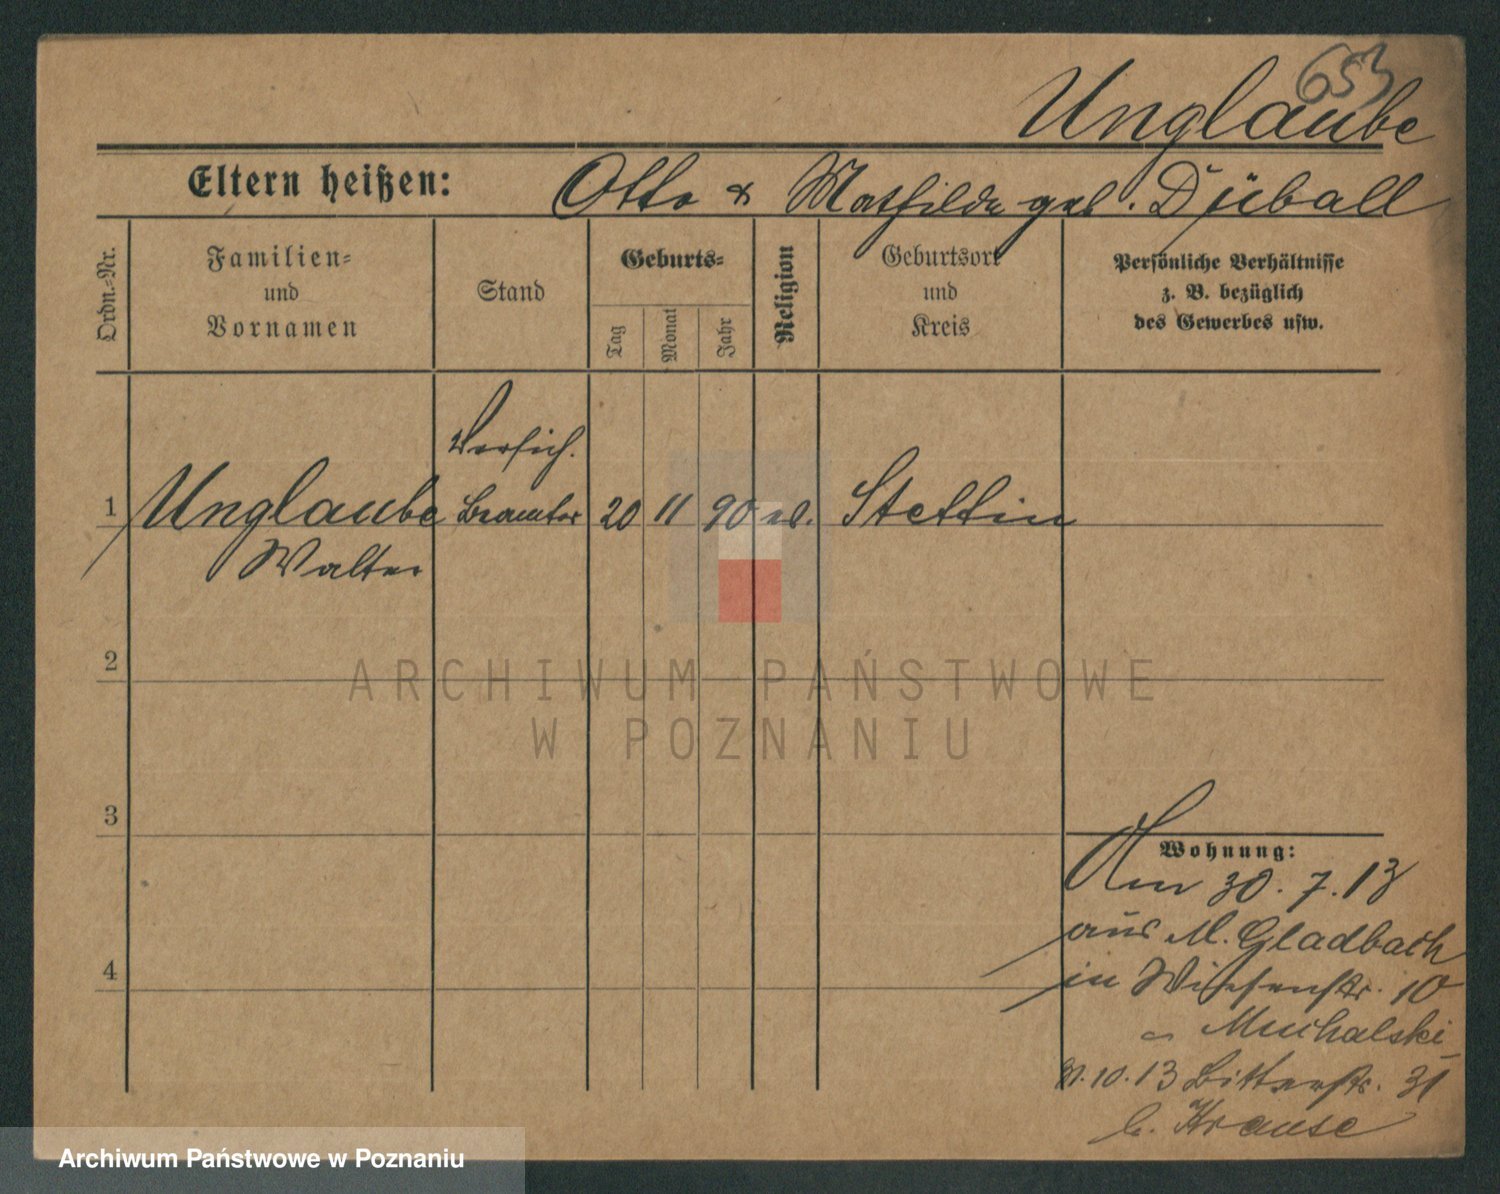 653
Unglaube
Eltern heißen: Otto & Mathilde geb. Düball
Ordn.-Nr.
Familien-
und
Vornamen
Stand
Geburts-
Tag
Monat
Jahr
Religion
Geburtsort
und
Kreis
Persönliche Verhältnisse
z. B. bezüglich
des Gewerbes usw.
Versich.
1 Unglaube Beamter 20 11 90 ev. Stettin
Walter
2
ARCHIWUM PAŃSTWOWE
W POZNANIU
3
Wohnung:
Am 30.7.13
aus M. Gladbach
4
in Wiesenstr. 10
Muchalski
10.13 Bitterstr. 31
b. Krause
Archiwum Państwowe w Poznaniu